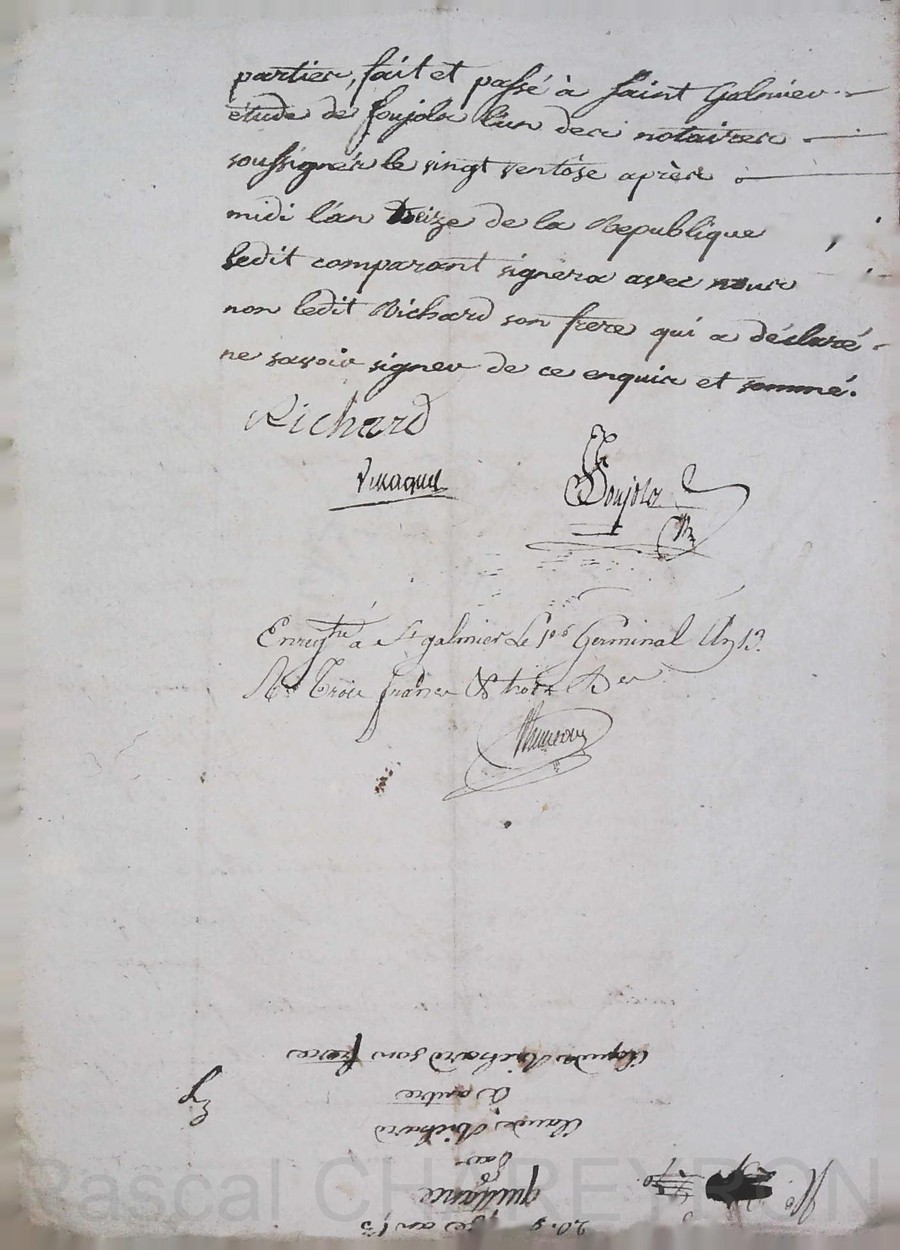 parties, fait et passé à Saint Galmier
étude de Soujolz l'un des notaires
soussignés le vingt ventôse après
midi l'an treize de la Republique
ledit comparant signera avec nous
non ledit Richard son frere qui a déclaré
ne savoir signer de ce enquis et sommé.
Richard
Enregtré à St galmier Le 1er Germinal An 13.
Trois francs & trois
quittance
par
Claude Richard
à autre
Claude Richard son frere
No
Pascal CHAREYRON